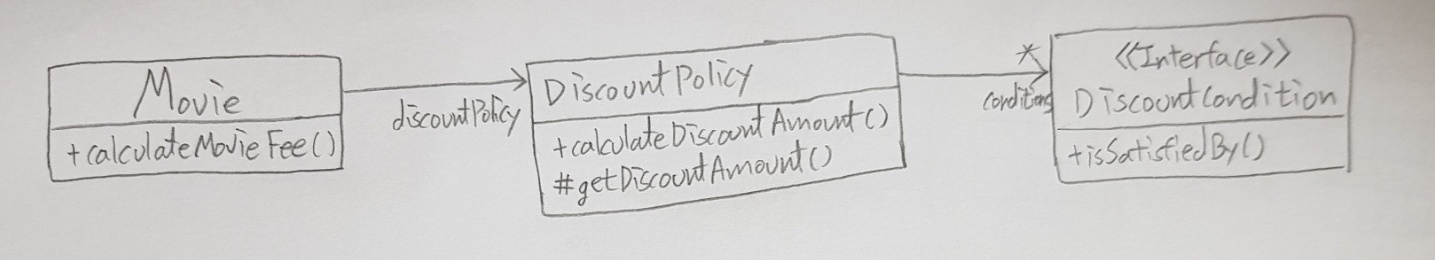 Movie
+calculateMovieFee()
discountPolicy
DiscountPolicy
+calculateDiscountAmount()
#getDiscountAmount()
*
conditions
<<Interface>>
DiscountCondition
+isSatisfiedBy()